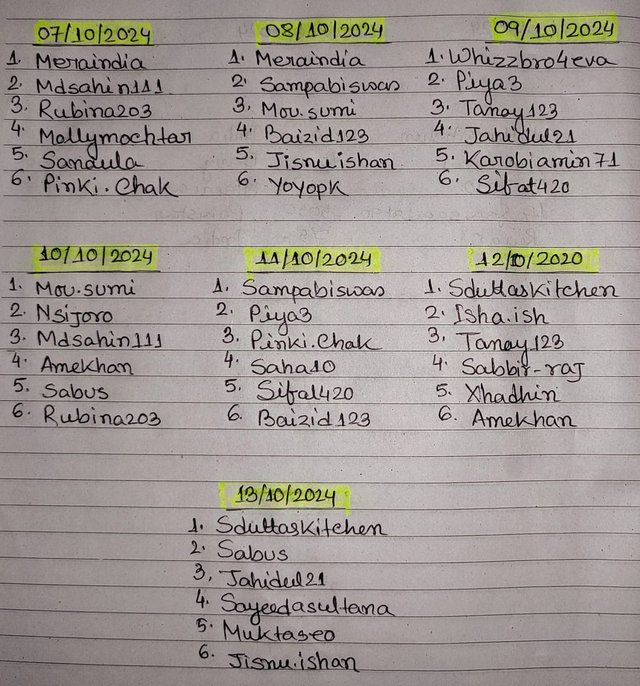 07/10/2024
1. Meraindia
2. Mdsahin111
3. Rubina203
4. Mollymochtar
5. Sandula
6. Pinki.Chak
08/10/2024
1. Meraindia
2. Sampabiswas
3. Mou.sumi
4. Baizid123
5. Jisnu.ishan
6. Yoyopk
09/10/2024
1. Whizzbro4eva
2. Piya3
3. Tanay123
4. Jahidul21
5. Karobiamin71
6. Sifat420
10/10/2024
1. Mou.sumi
2. Nsijoro
3. Mdsahin111
4. Amekhan
5. Sabus
6. Rubina203
11/10/2024
1. Sampabiswas
2. Piya3
3. Pinki.Chak
4. Saha10
5. Sifat420
6. Baizid123
12/10/2020
1. Sduttaskitchen
2. Isha.ish
3. Tanay123
4. Sabbir-raj
5. Xhadhin
6. Amekhan
13/10/2024
1. Sduttaskitchen
2. Sabus
3. Jahidul21
4. Sayeedasultana
5. Muktaseo
6. Jisnu.ishan